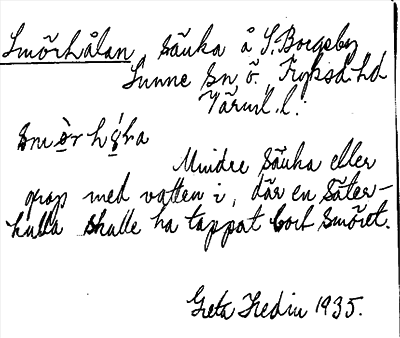 Smörhålan sänka å S. Borgeby
Sunne sn ö. Fryksd. hd
Värml. l.
smɔ̀r hɔ́ɫa
Mindre sänka eller
grop med vatten i, där en säter-
kulla skulle ha tappat bort smöret.
Greta Hedin 1935.